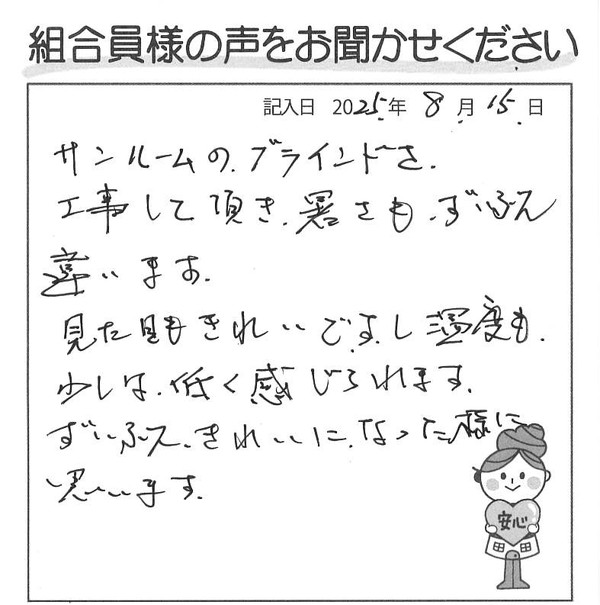 組合員様の声をお聞かせください
記入日 2025年 8月 15日
サンルームの、ブラインドを、
工事して頂き、暑さも、ずいぶん
違います。
見た目もきれいですし湿度も、
少しは、低く感じられます。
ずいぶん、きれいに、なった様に
思います。
安心